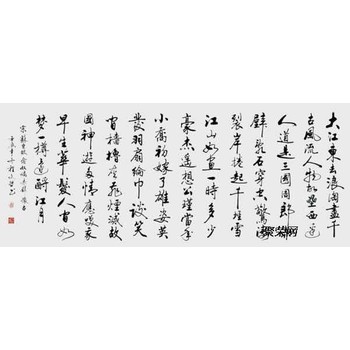 大江東去浪淘盡千
古風流人物故壘西邊
人道是三國周郎赤
壁亂石穿空驚濤
裂岸捲起千堆雪
江山如畫一時多少
豪傑遙想公瑾當年
小喬初嫁了雄姿英
發羽扇綸巾談笑
間檣櫓灰飛煙滅故
國神遊多情應笑我
早生華髮人間如
夢一樽還酹江月
宋蘇東坡念奴嬌赤壁懷古